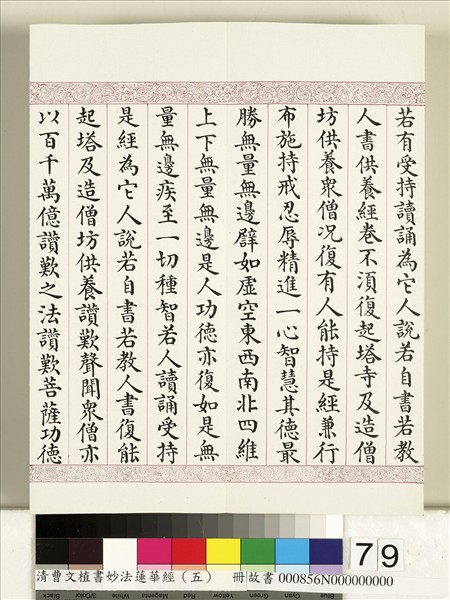 若有受持讀誦為它人說若自書若教
人書供養經卷不湏復起塔寺及造僧
坊供養衆僧况復有人能持是經兼行
布施持戒忍辱精進一心智慧其德最
勝無量無邊譬如虛空東西南北四維
上下無量無邊是人功德亦復如是無
量無邊疾至一切種智若人讀誦受持
是經為它人說若自書若教人書復能
起塔及造僧坊供養讚歎聲聞衆僧亦
以百千萬億讚歎之法讚歎菩薩功德
79
清曹文植書妙法蓮華經（五） 冊故書 000856N000000000
Black 3/Color White Magenta Red Yellow Green Cyan Blue